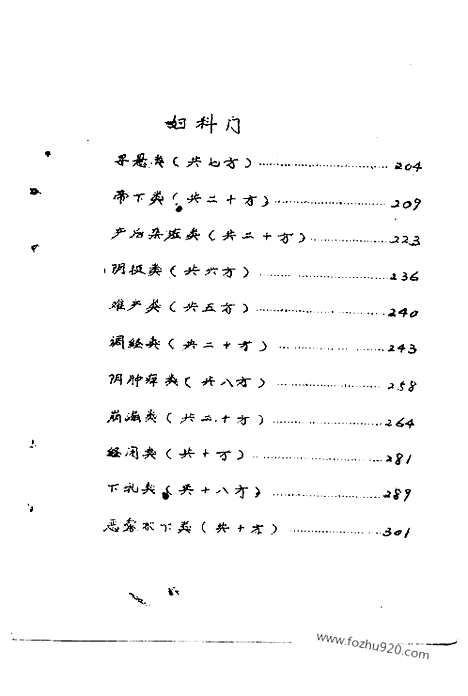 妇科门
子悬类(共七方)……………204
带下类(共二十方)……………209
产后杂症类(共二十方)……………223
阴挺类(共六方)……………236
难产类(共五方)……………240
调经类(共二十方)……………243
阴肿痒类(共八方)……………258
崩漏类(共二十方)……………264
经闭类(共十方)……………281
下乳类(共十八方)……………289
恶露不下类(共十方)……………301
www.fozhu920.com